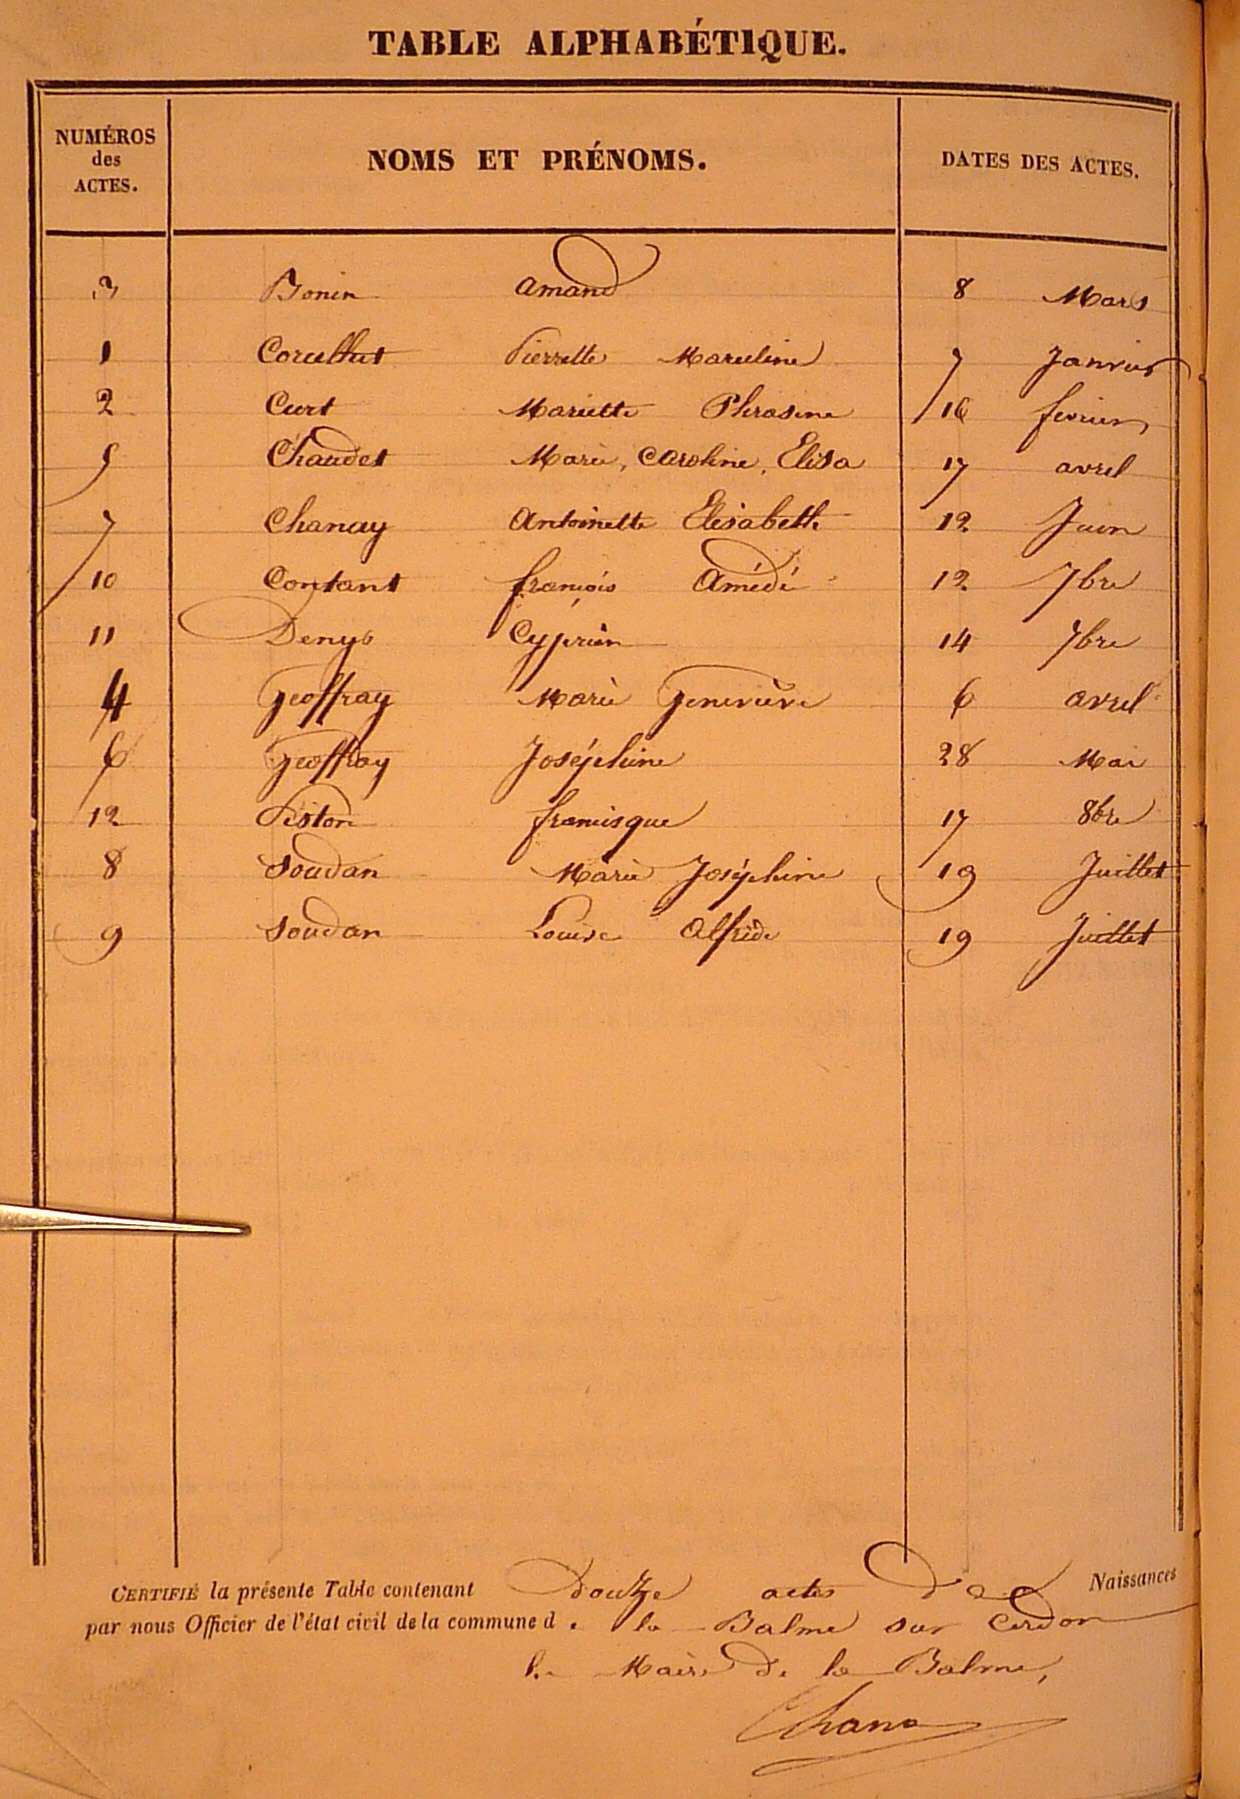 TABLE ALPHABÉTIQUE.
NUMÉROS des ACTES. NOMS ET PRÉNOMS. DATES DES ACTES.
3 Bonin Amand 8 Mars
1 Pierrette Marceline 7 Janvier
2 Curt Mariette Phrasine 16 fevrier
5 Chaudet Marie, Caroline, Elisa 17 avril
7 Chanay Antoinette Elisabeth 12 Juin
10 Contant françois Amédé 12 7bre
11 Denys Cyprien 14 7bre
4 Geoffray Marie Geneviève 6 avril
6 Geoffray Joséphine 28 Mai
12 Piston francisque 17 8bre
8 Soudan Marie Joséphine 19 Juillet
9 Soudan Louise Alfride 19 Juillet
CERTIFIÉ la présente Table contenant douze actes de Naissances
par nous Officier de l'état civil de la commune d e la Balme sur Cerdon
le Maire de la Balme,